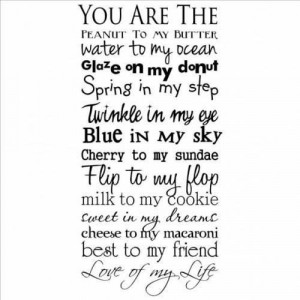 You Are The
Peanut To My Butter
water to my ocean
Glaze on my donut
Spring in my step
Twinkle in my eye
Blue in my sky
Cherry to my sundae
Flip to my flop
milk to my cookie
sweet in my dreams
cheese to my macaroni
best to my friend
Love of my Life